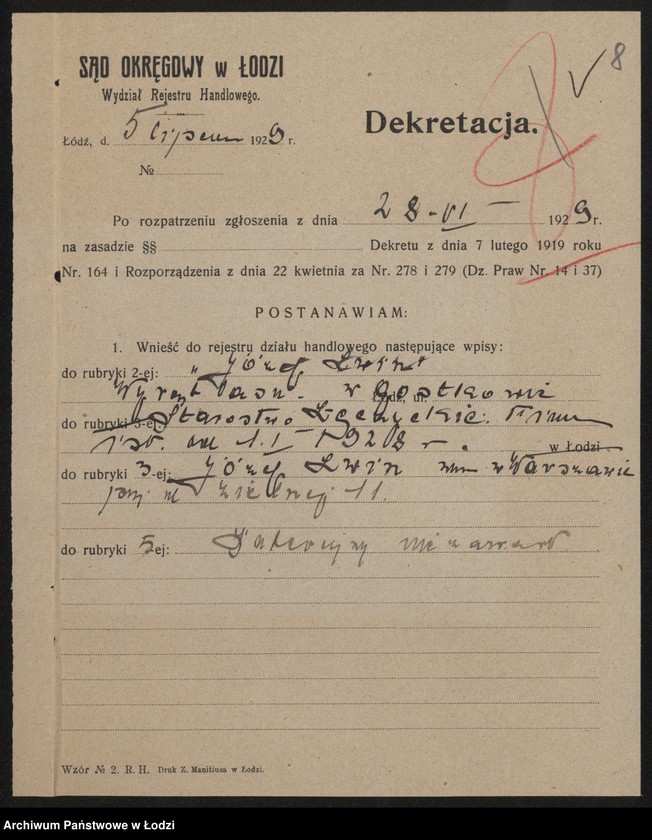 8
SĄD OKRĘGOWY w ŁODZI
Wydział Rejestru Handlowego.
Łódź, d. 5 lipca 1929 r.
№
Dekretacja.
Po rozpatrzeniu zgłoszenia z dnia 28-VI 1929 r.
na zasadzie §§ Dekretu z dnia 7 lutego 1919 roku
Nr. 164 i Rozporządzenia z dnia 22 kwietnia za Nr. 278 i 279 (Dz. Praw Nr. 14 i 37)
POSTANAWIAM:
1. Wnieść do rejestru działu handlowego następujące wpisy:
do rubryki 2-ej: „Józef Lwin"
Wyrąb lasu. w Gostkowie
do rubryki 3-ej Starostwo Łęczyckie. Firma
ist. od 1.I 1928 r. w Łodzi
do rubryki 3-ej: Józef Lwin zam. w Warszawie
przy ul Zielnej 11.
do rubryki 5-ej: nie zawarł
Wzór № 2. R. H. Druk Z. Manitiusa w Łodzi.
Archiwum Państwowe w Łodzi